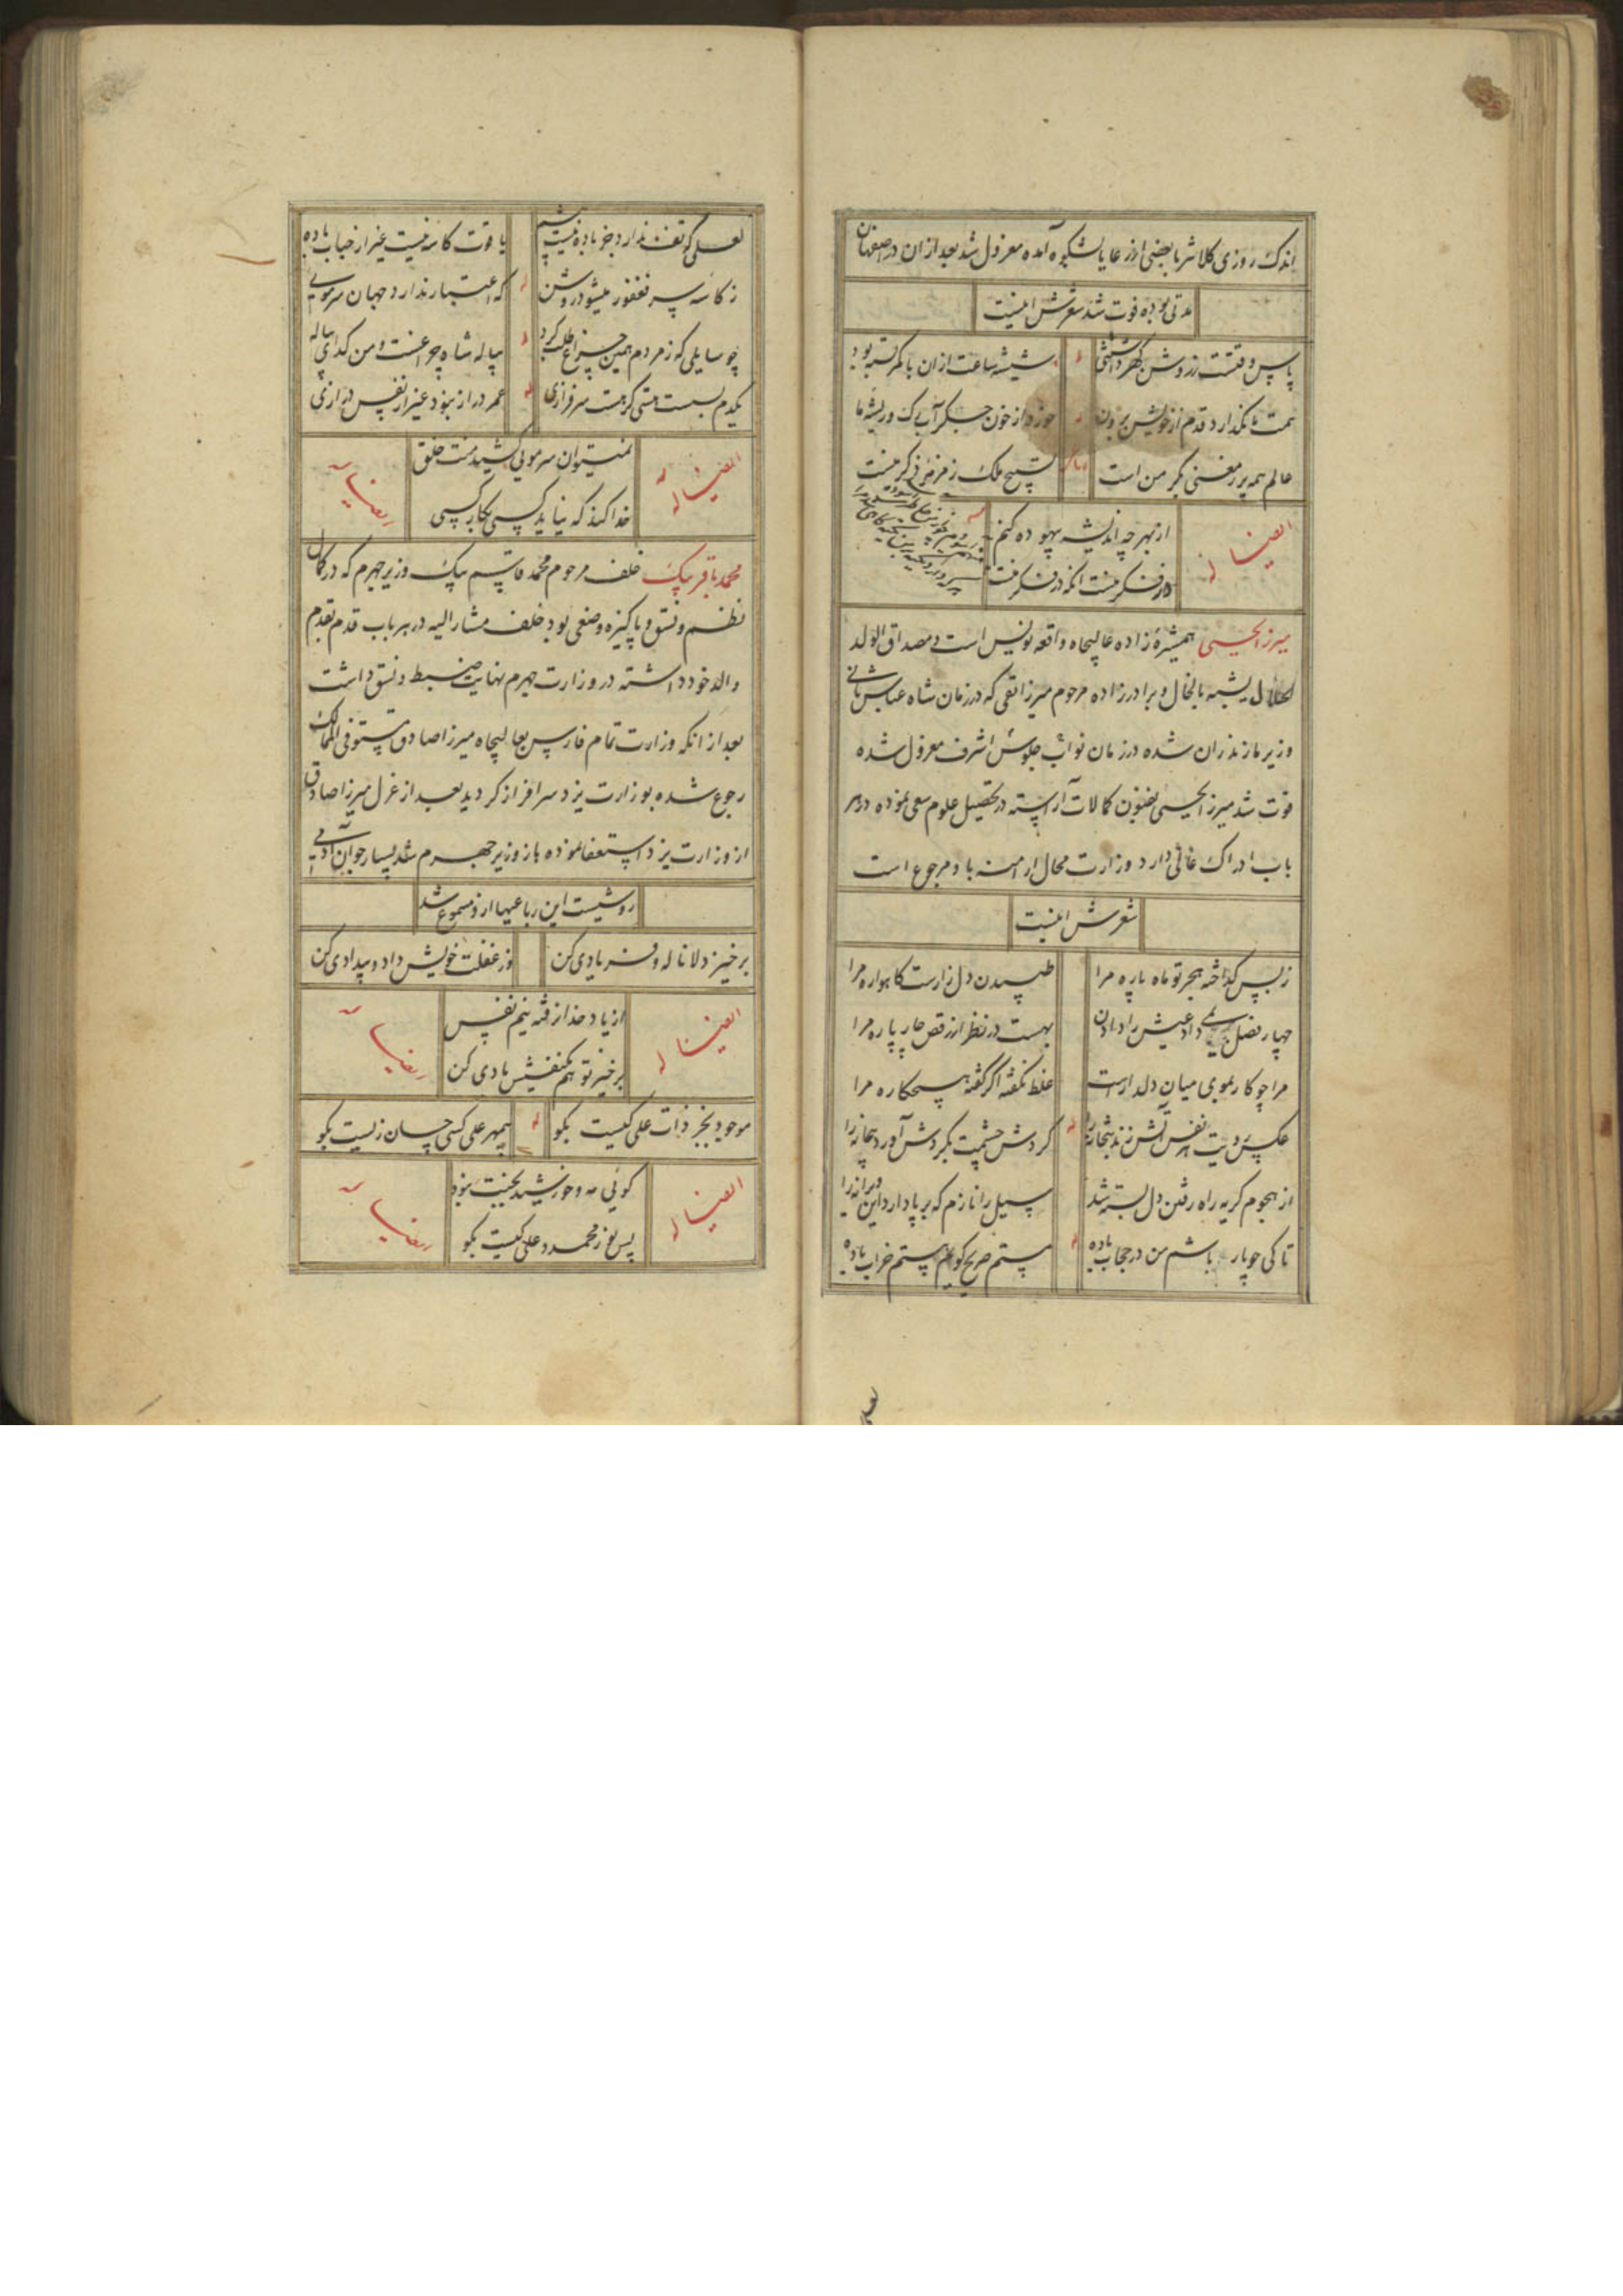 اندک روزی کلانتر با بعضی از رعایا بشکوه آمده معزول شد بعد از ان در اصفهان
مدتی بوده فوت شد شعرش اینست
پاس وقتست ز روشن گهر داشتنی
شیشه ساعت ازان با کمر بسته بود
همت ما نگذارد قدم از خویش برون
خورد از خون جگر آب رک و ریشه ما
عالم همه پر ز معنی بکر من است
تسبیح ملک ز مزمزه ذکر منست
ایضا له
از بهر چه اندیشه بیهوده کنم
در فکر منست انکه در فکر منست
میرزا یحیی همشیره زاده عالیجاه واقعه نویس است و مصداق الولد
الحلال یشبه بالخال و برادرزاده مرحوم میرزا تقی که در زمان شاه عباس ثانی
وزیر مازندران شده در زمان نواب جلوس اشرف معزول شده
فوت شد میرزا یحیی بفنون کمالات آراسته در تحصیل علوم سعی نموده در هر
باب ادراک عالی دارد وزارت محال ارامنه باو مرجوع است
شعرش اینست
ز بس گداخته هجر تو ماه پاره مرا
طپیدن دل زارست کاهواره مرا
چهار فصل می داد عیش را دادن
بهست در نظر از رقص چارپاره مرا
مرا چو کار بموی میان دلدارست
غلط نگفته اگر گفته هیچکاره مرا
عکس رویت هر نفس آتش زند بتخانه را
گردش چشمت بگردش آورد پیمانه را
از هجوم گریه راه رفتن دل بسته شد
سیل را نازم که بر پا دارد این ویرانه را
تا کی چو یار باشم من در حجاب باده
مستم صریح گویم هستم خراب باده
لعلی که تف ندارد جز باده نیست پیشم
یا قوت کاسه نیست غیر از حباب باده
ز کاسه سر فغفور میشود روشن
که اعتبار ندارد جهان سر مویی
چو سایلی که ز مردم همین چراغ طلب کرد
پیاله شاه چراغست و من گدای پیاله
یکدم بسست هستی گر هست سرفرازی
عمر دراز نبود غیر از نفس درازی
ایضا له
نمیتوان سر مویی کشید منت خلق
خدا کند که نیاید کسی بکار کسی
ایضا له
محمد باقر بیک خلف مرحوم محمد قاسم بیک وزیر جهرم که در کمال
نظم و نسق و پاکیزه وضعی بود خلف مشار الیه در هر باب قدم بقدم
والد خود داشته در وزارت جهرم نهایت ضبط و نسق داشت
بعد از انکه وزارت تمام فارس بعالیجاه میرزا صادق مستوفی الممالک
رجوع شده بوزارت یزد سرافراز گردید بعد از عزل میرزا صادق
از وزارت یزد استعفا نموده باز وزیر جهرم شد بسیار جوان آدمی
روشیست این رباعیها ازو مسموع شد
برخیز دلا ناله و فریادی کن
وز غفلت خویش داد و بیدادی کن
ایضا له
از یاد خدا رفته نیم نفس
برخیز تو هم یکنفسش یادی کن
ایضا له
موجود بجز ذات علی کیست بگو
بیمهر علی کسی چسان زیست بگو
ایضا له
گوئی مه و خورشید بجنبت نبود
پس نور محمد و علی کیست بگو
ایضا له